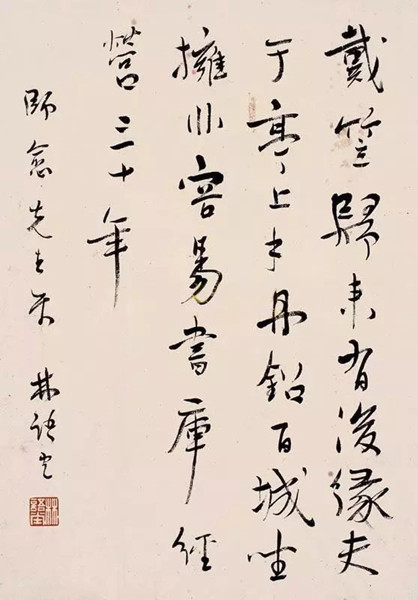 戴笠歸來有後緣夫
于亭上手丹鉛百城坐
擁非容易書庫經
營三十年
師愈先生
林語堂